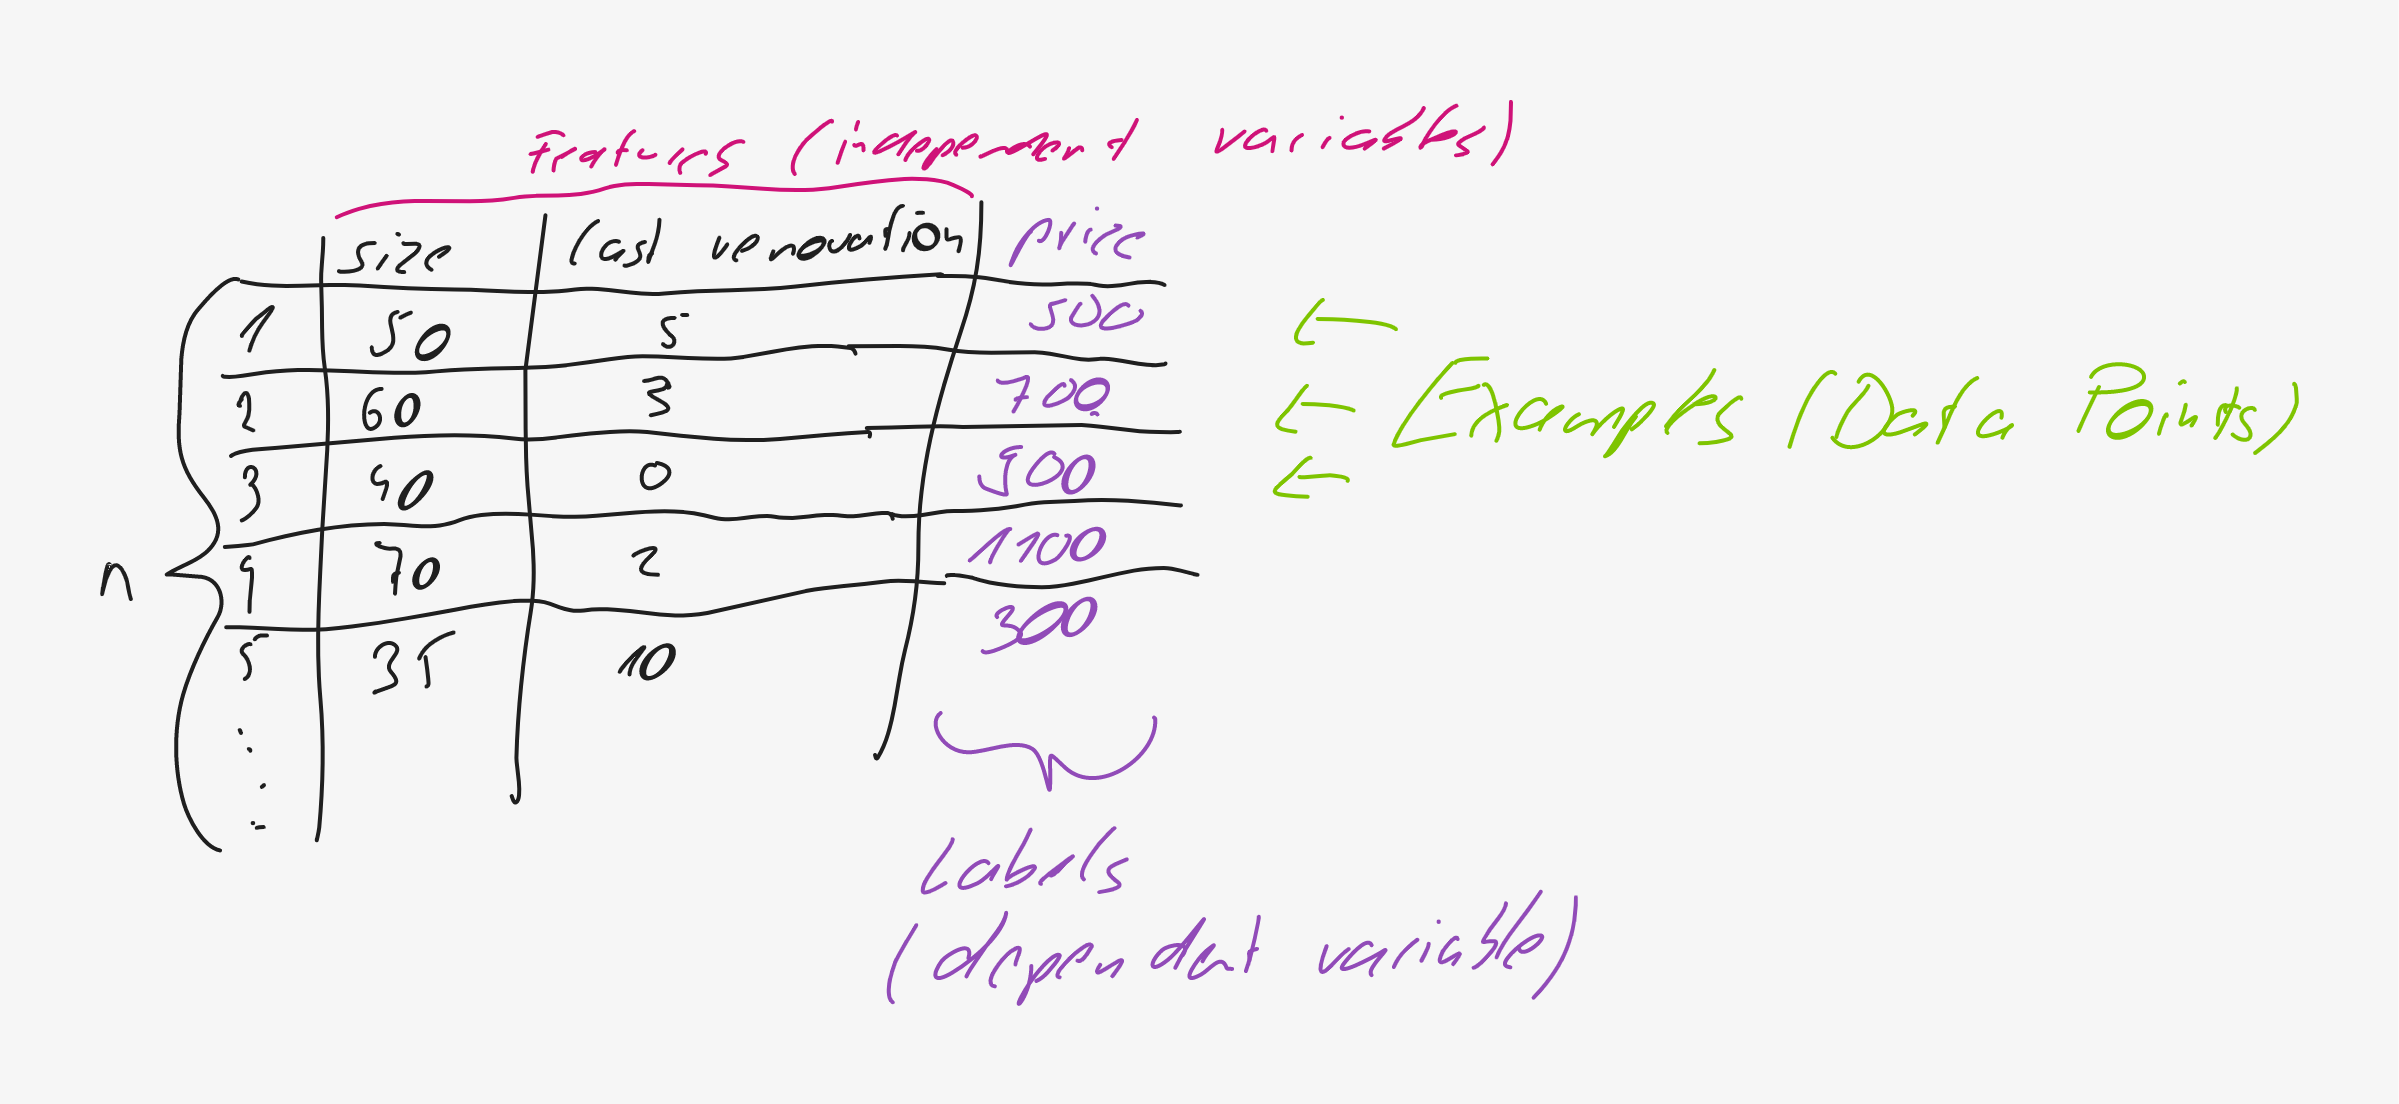 Features (independent variables)
size last renovation price
1 50 5 500
2 60 3 700
3 40 0 900
4 70 2 1100
5 35 10 300
n
← Examples (Data Points)
←
←
Labels
(dependent variable)